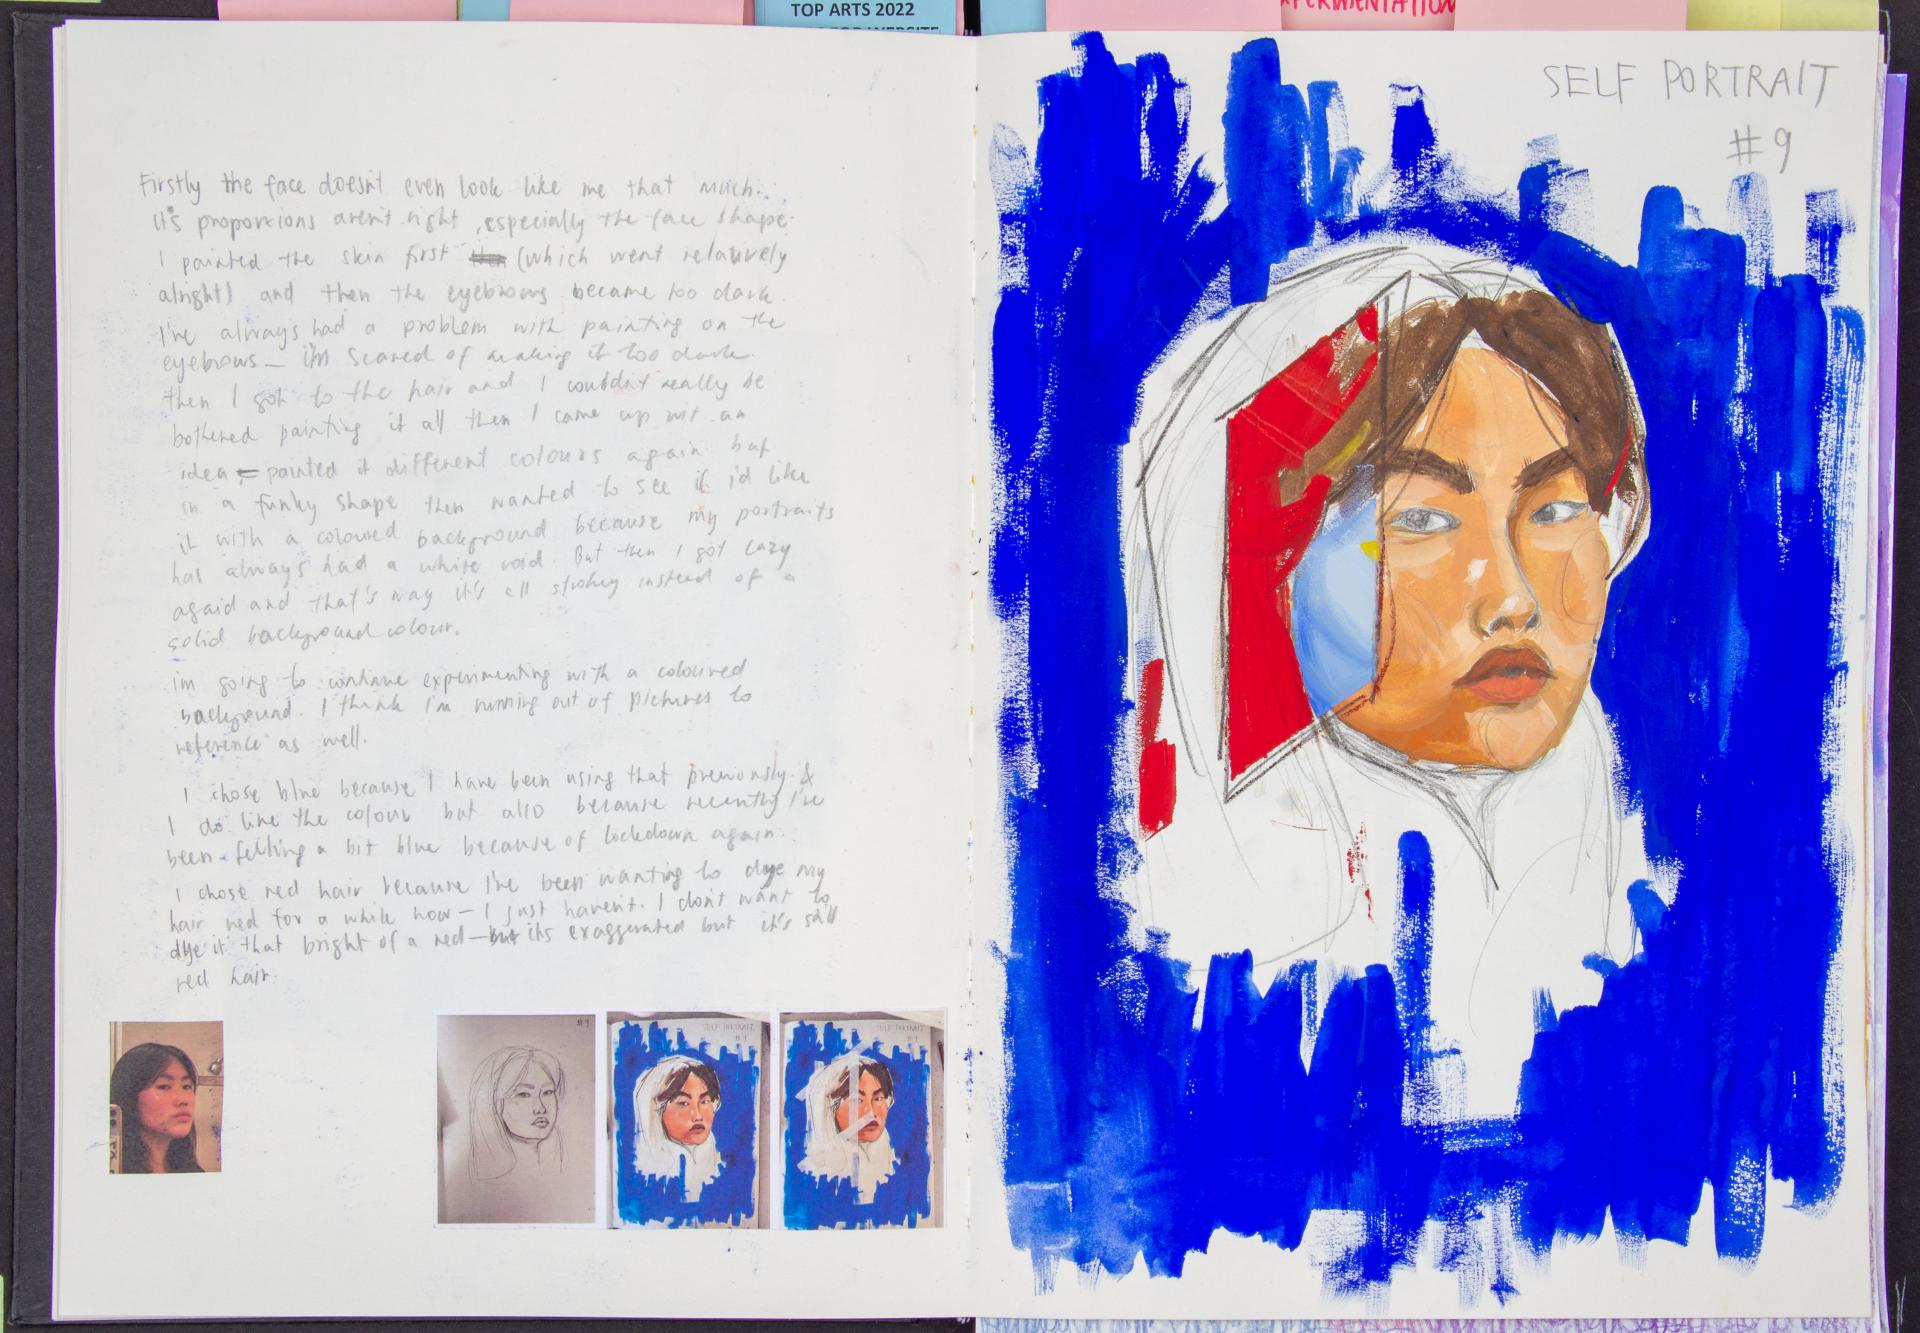 TOP ARTS 2022
FOR WEBSITE
EXPERIMENTATION
Firstly the face doesn't even look like me that much.
it's proporcions aren't right, especially the face shape.
I painted the skin first (which went relatively
alright) and then the eyebrows became too dark.
I've always had a problem with painting on the
eyebrows – i'm scared of making it too dark.
then I got to the hair and I couldn't really be
bothered painting it all then I came up wit an
idea – painted it different colours again but
in a funky shape then wanted to see if i'd like
it with a coloured background because my portraits
has always had a white void. But then I got lazy
again and that's way it's all strokey instead of a
solid background colour.
im going to continue experimenting with a coloured
background. I think I'm running out of pictures to
reference as well.
I chose blue because I have been using that previously &
I do like the colour but also because recently I've
been felling a bit blue because of lockdown again.
I chose red hair because I've been wanting to dye my
hair red for a while now – I just haven't. I don't want to
dye it that bright of a red – but its exaggurated but it's still
red hair.
#9
SELF PORTRAIT
#9
SELF PORTRAIT
#9
SELF PORTRAIT
#9